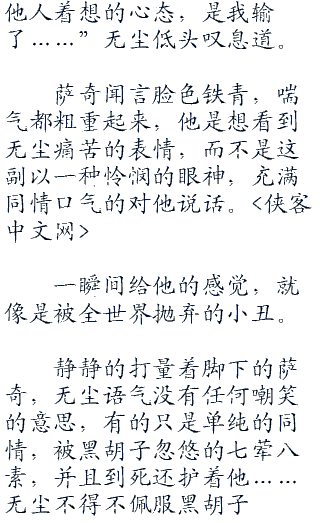 他人着想的心态，是我输
了……”无尘低头叹息道。
萨奇闻言脸色铁青，喘
气都粗重起来，他是想看到
无尘痛苦的表情，而不是这
副以一种怜悯的眼神，充满
同情口气的对他说话。<侠客
中文网>
一瞬间给他的感觉，就
像是被全世界抛弃的小丑。
静静的打量着脚下的萨
奇，无尘语气没有任何嘲笑
的意思，有的只是单纯的同
情，被黑胡子忽悠的七荤八
素，并且到死还护着他……
无尘不得不佩服黑胡子